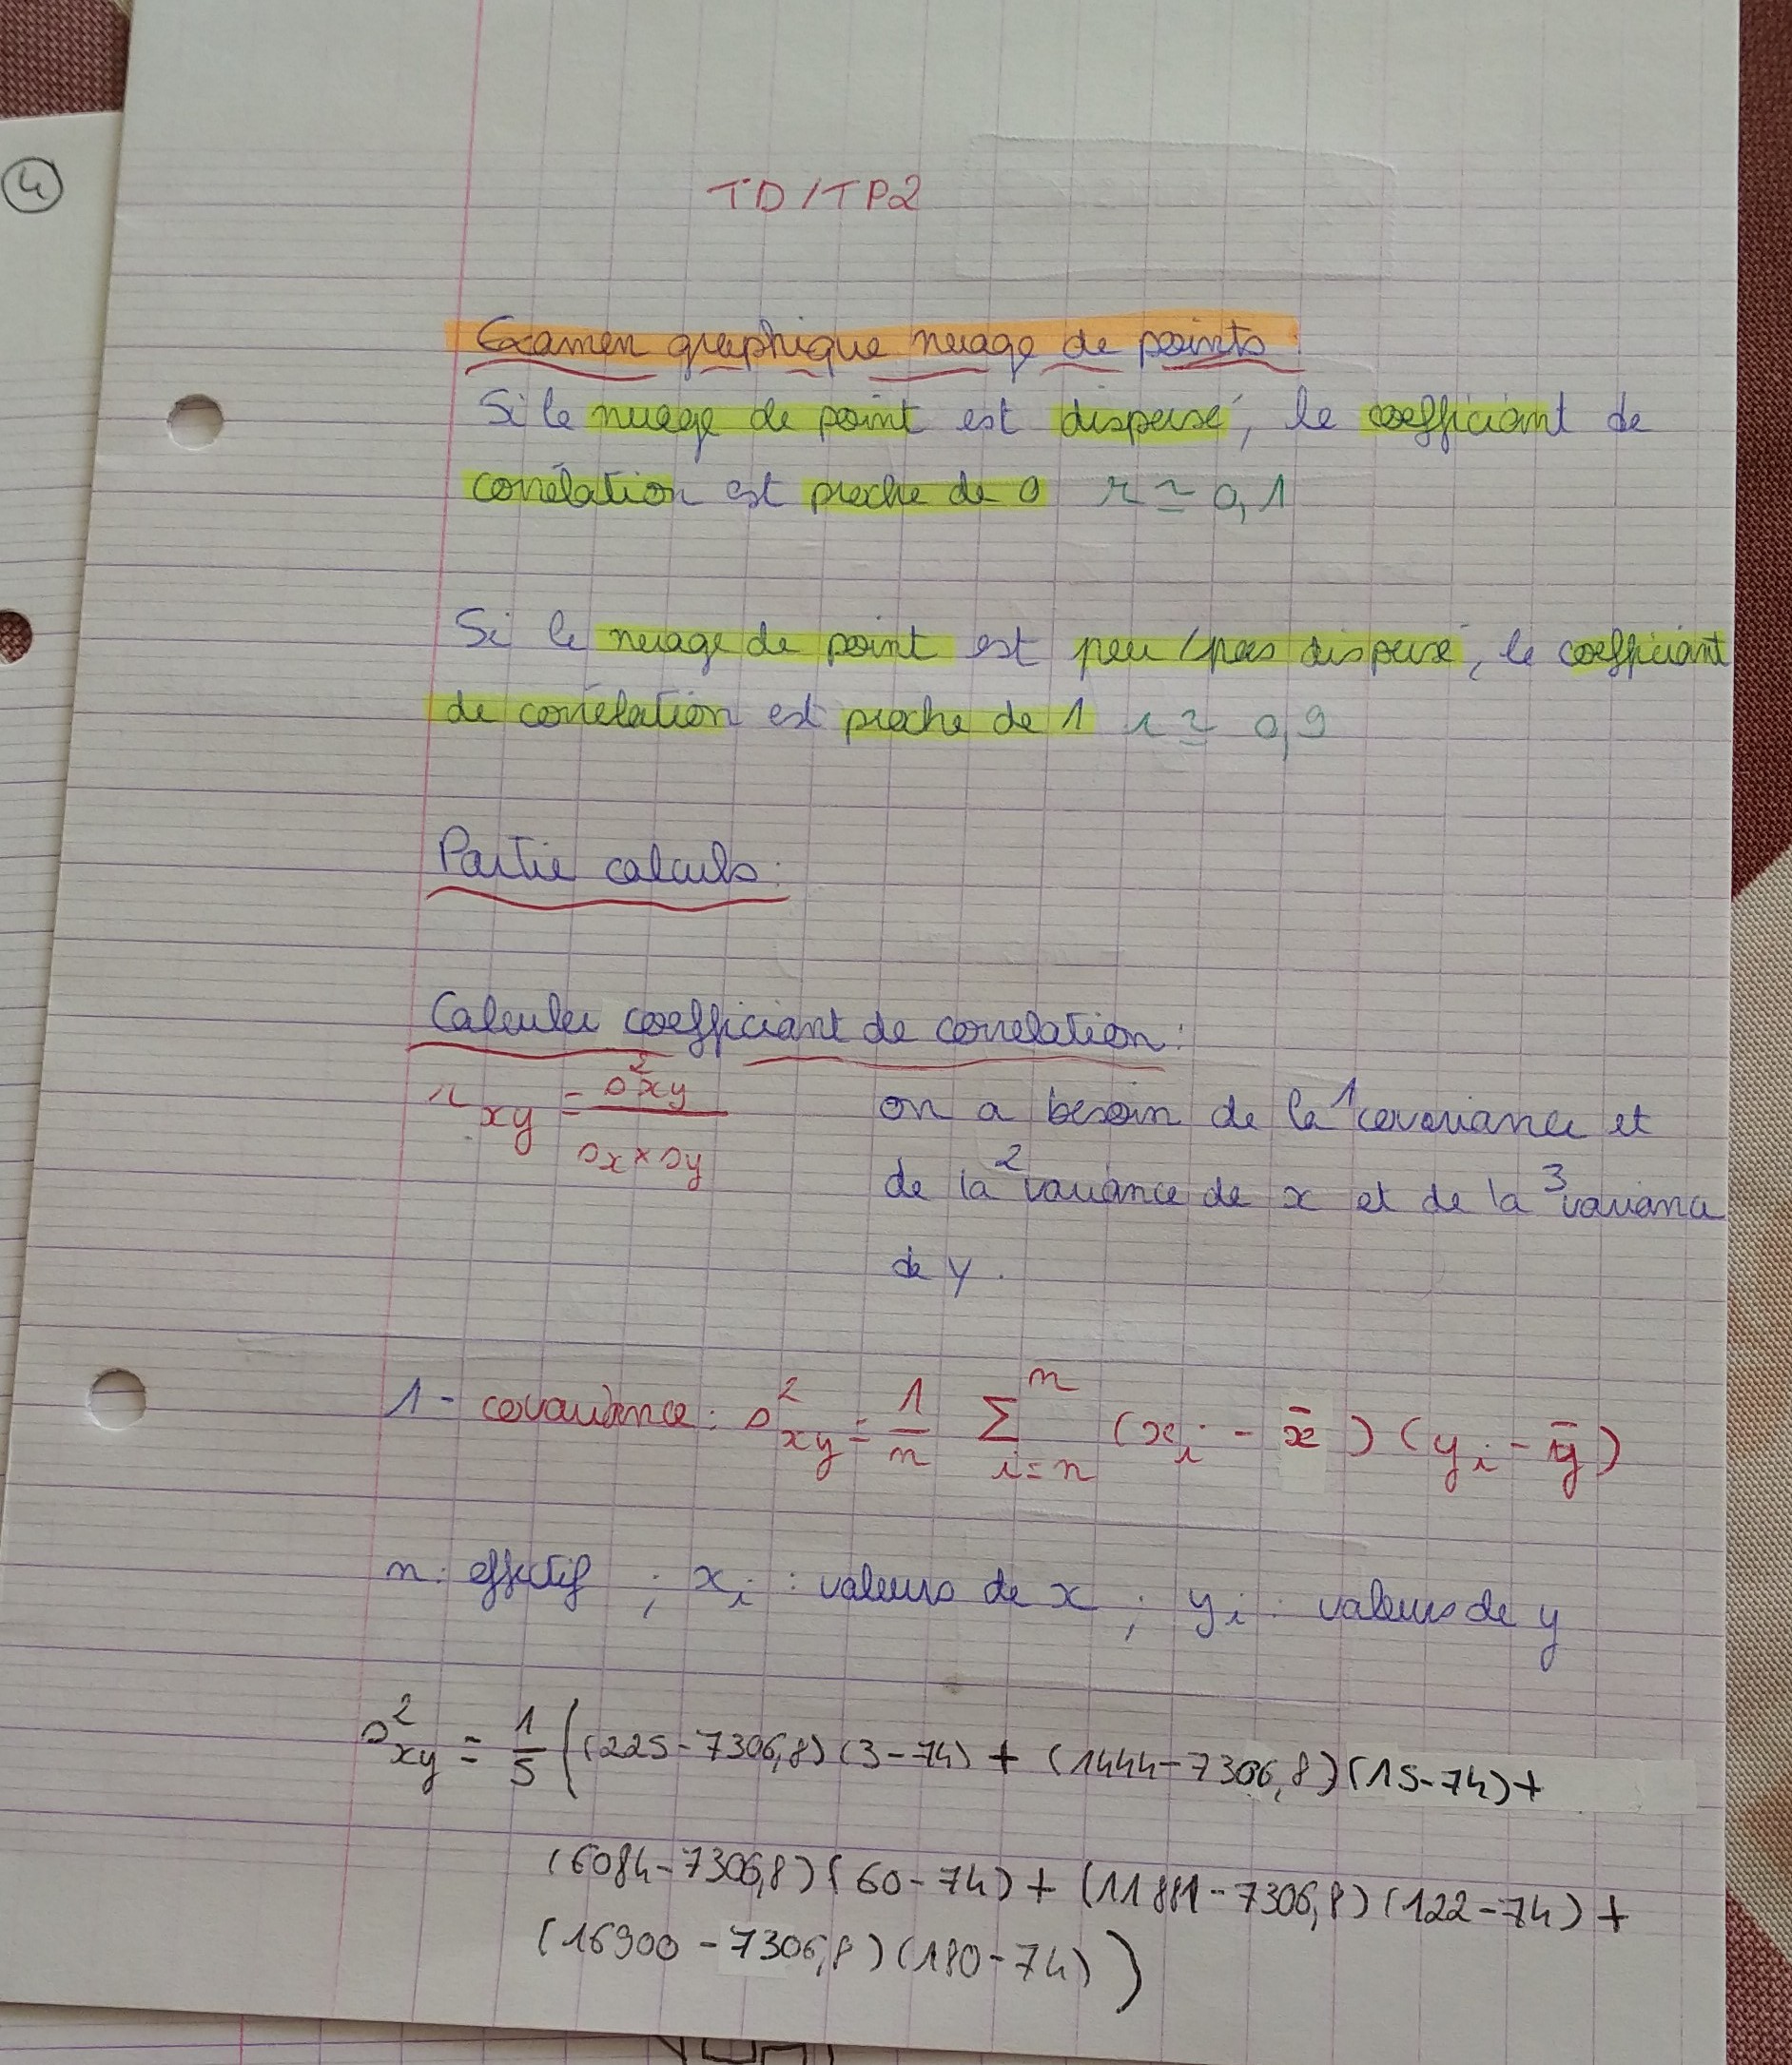 4
TD/TP2
Examen graphique nuage de points :
Si le nuage de point est dispersé, le coefficiant de
corrélation est proche de 0 r ≃ 0,1
Si le nuage de point est peu/pas dispersé, le coefficiant
de corrélation est proche de 1 r ≃ 0,9
Partie calculs :
Calculer coefficiant de correlation :
r xy = s²xy / sx × sy
on a besoin de la ¹covariance et
de la ²variance de x et de la ³variance
de y.
1 - covariance : s²xy = 1/n Σ^n_{i=n} (xi - x̄)(yi - ȳ)
n : effectif ; xi : valeurs de x ; yi : valeurs de y
s²xy = 1/5 ((225-7306,8)(3-74) + (1444-7306,8)(15-74)+
(6084-7306,8)(60-74) + (11881-7306,8)(122-74) +
(16900-7306,8)(180-74))